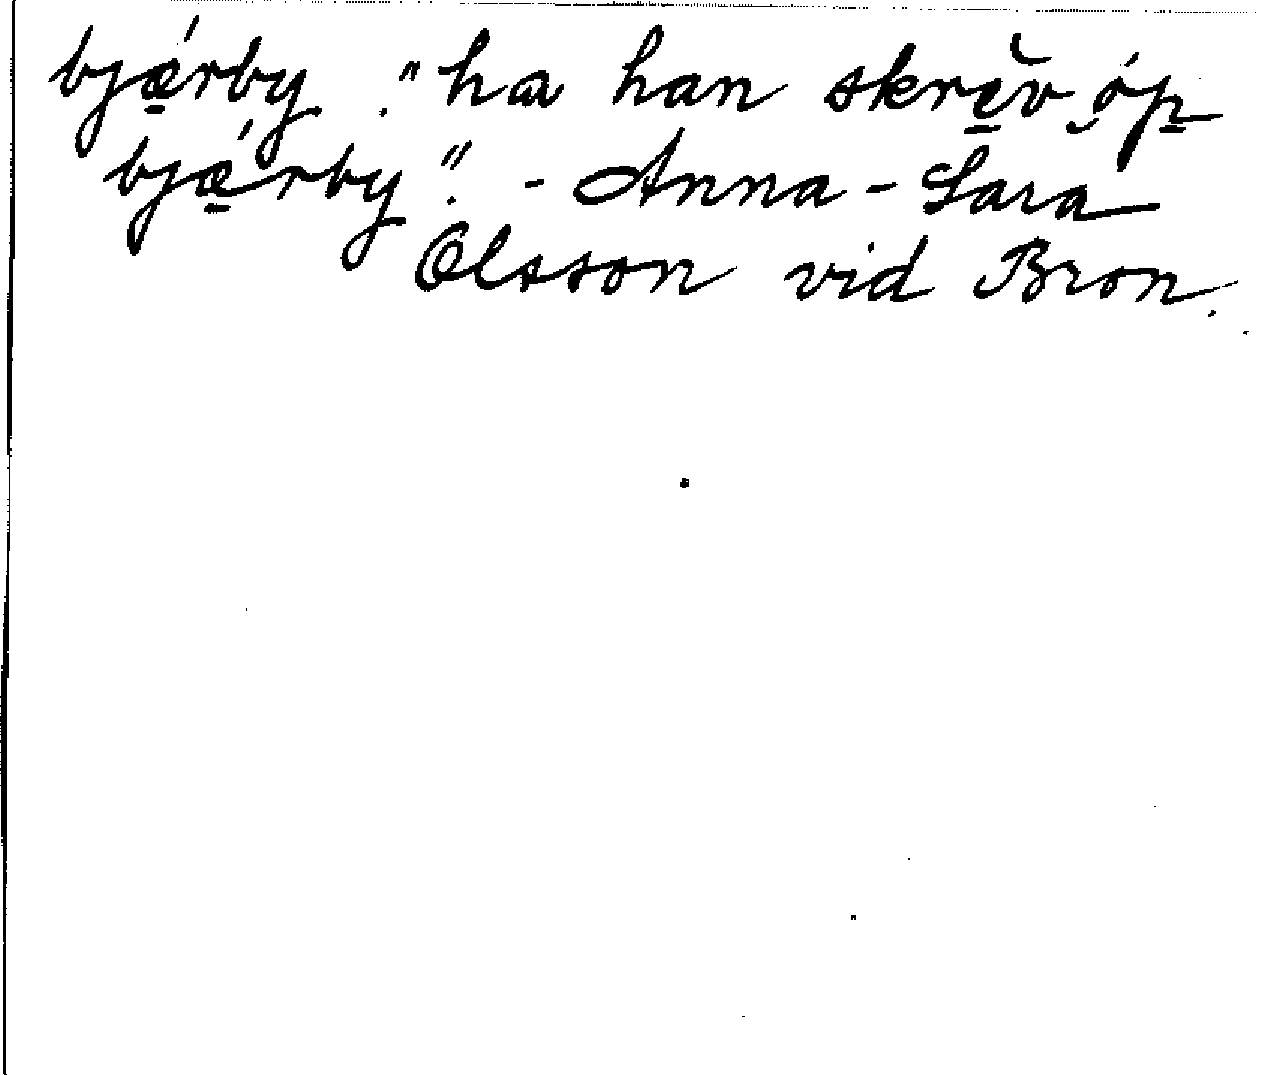 bjǽ̱rby. "ha han skrĕ̱v óp̱
bjǽ̱rby". - Anna-Sara
Olsson vid Bron.